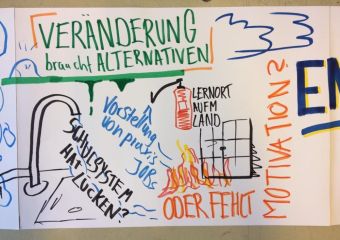 VERÄNDERUNG
braucht ALTERNATIVEN
SCHULSYSTEM
HAT LÜCKEN?
Vorstellung
von praxis
JOBS
LERNORT
AUF'M
LAND
ODER FEHLT
MOTIVATION?
EN